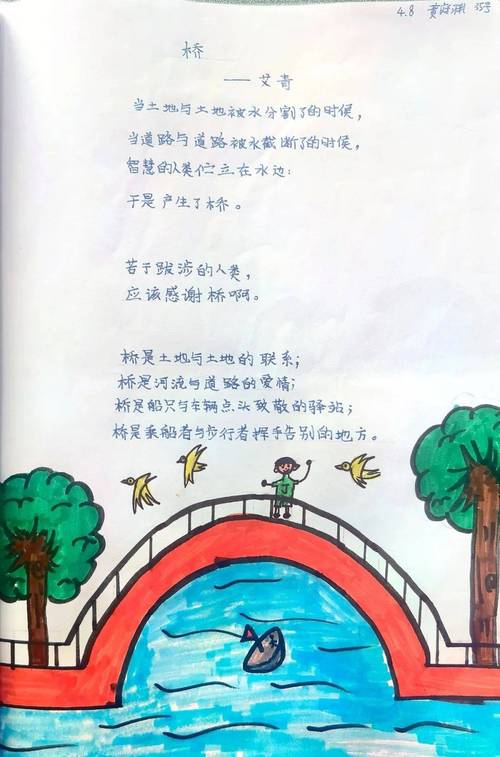 4.8 黄 35号
桥
—— 艾奇
当土地与土地被水分割了的时候，
当道路与道路被水截断了的时候，
智慧的人类伫立在水边：
于是产生了桥。
苦于跋涉的人类，
应该感谢桥啊。
桥是土地与土地的联系；
桥是河流与道路的爱情；
桥是船只与车辆点头致敬的驿站；
桥是乘船者与步行者挥手告别的地方。